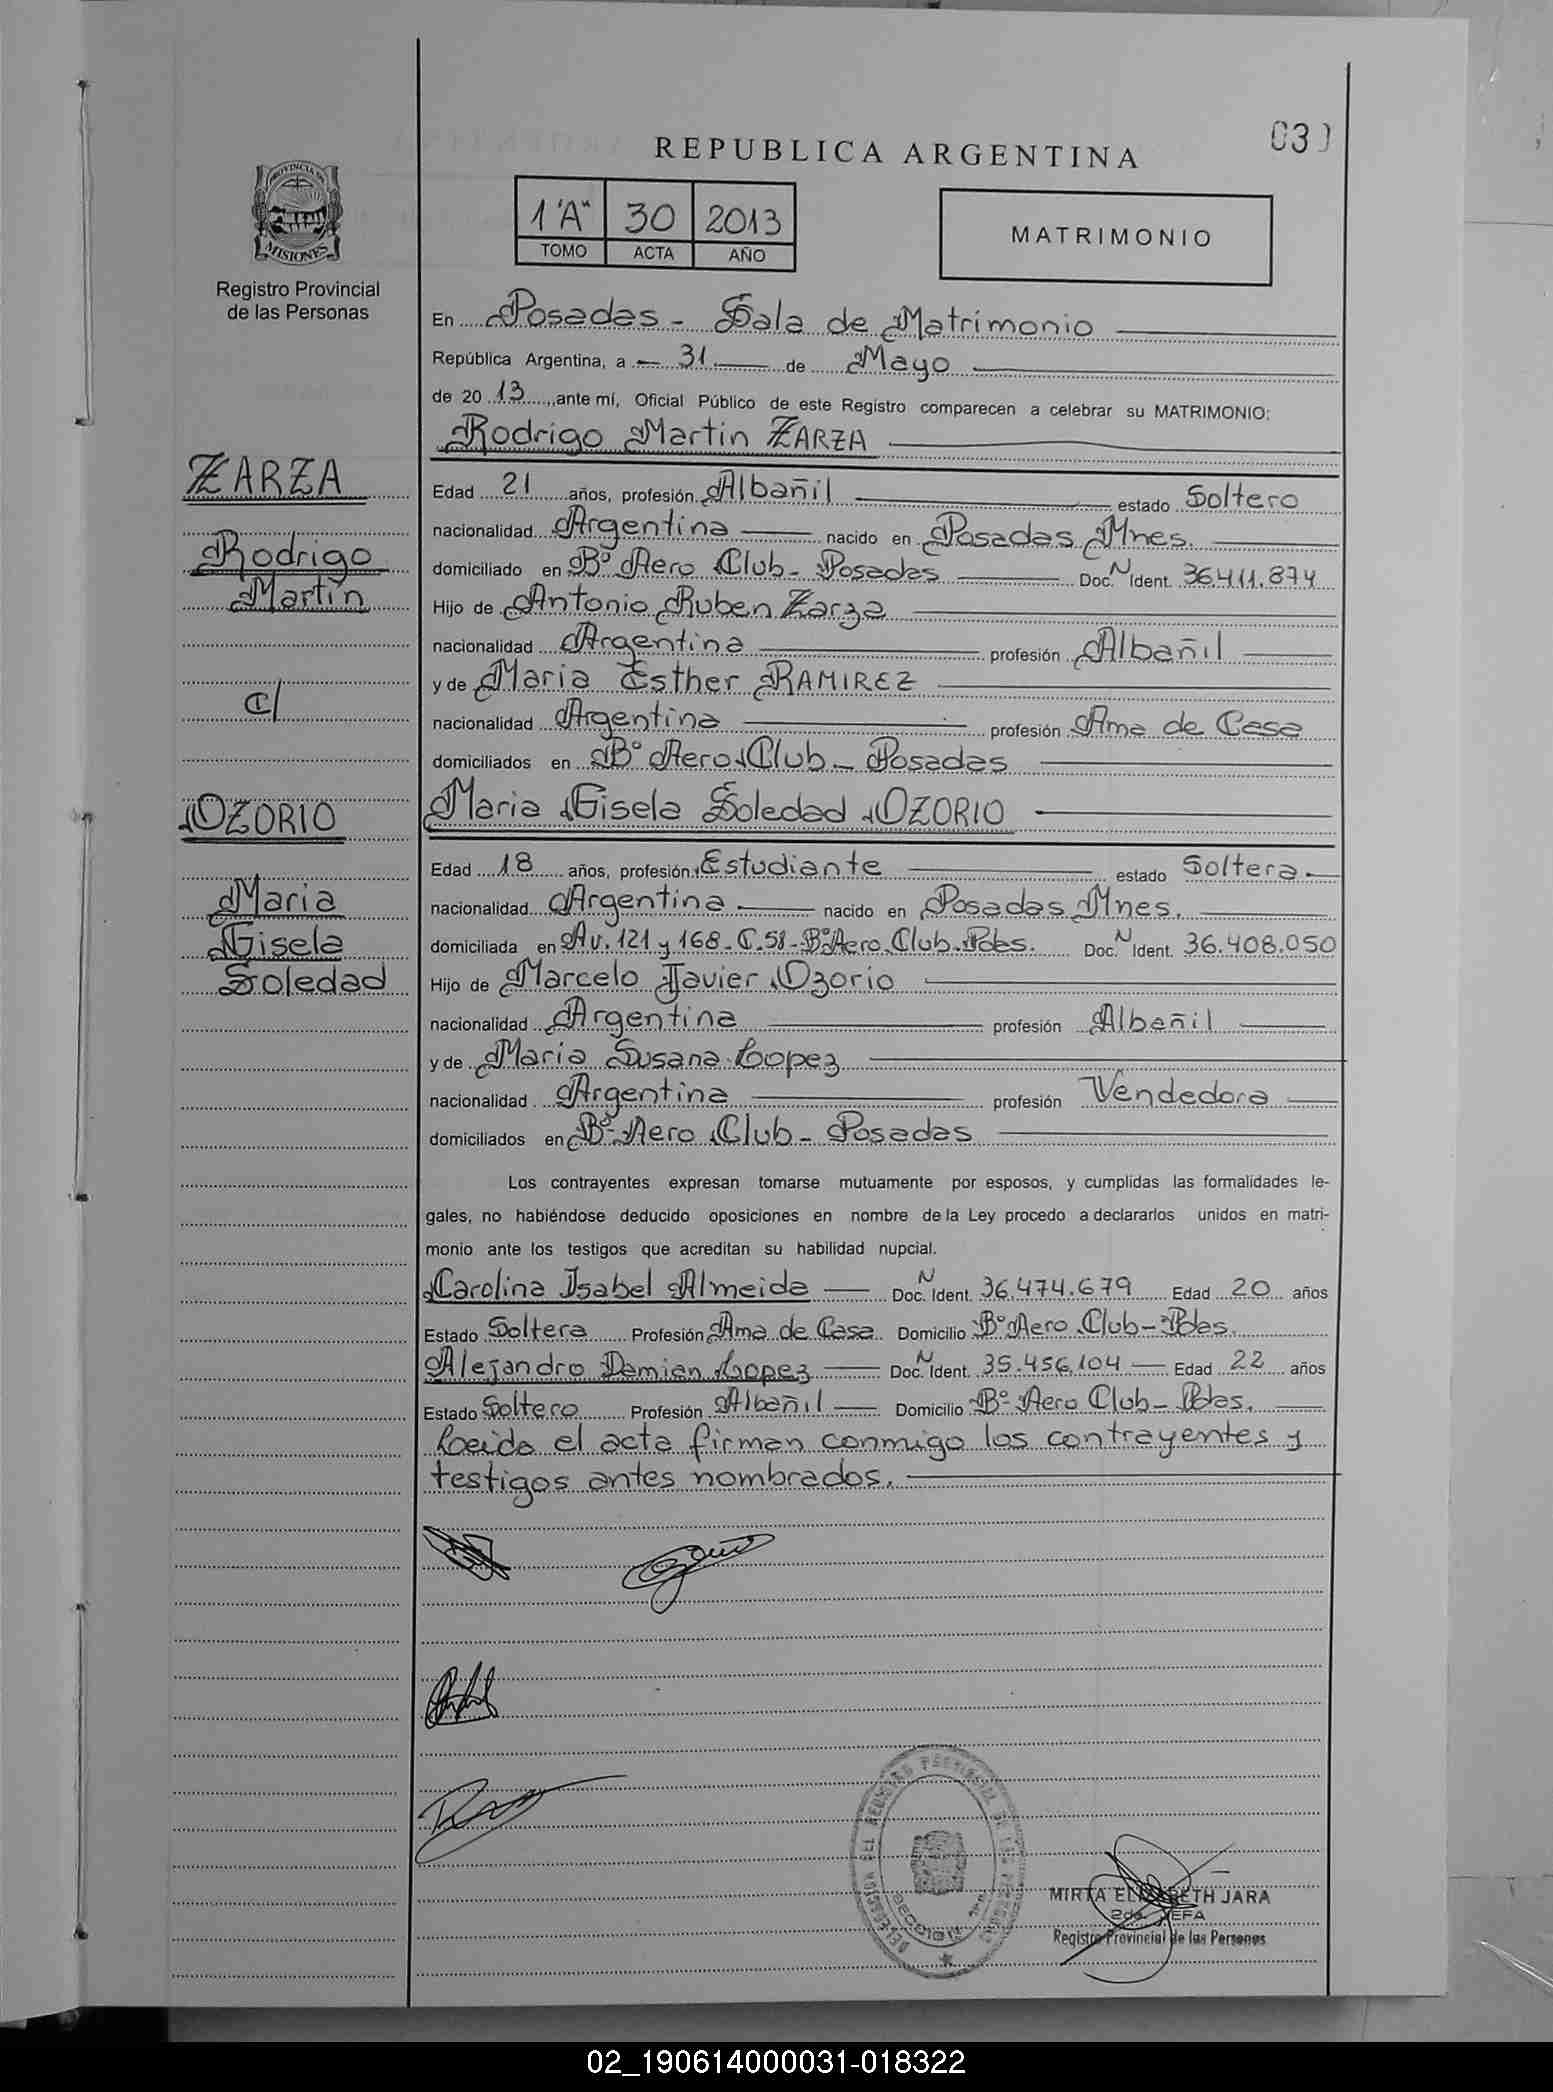 REPUBLICA ARGENTINA
PROVINCIA DE
MISIONES
Registro Provincial
de las Personas
1 "A" 30 2013
TOMO ACTA AÑO
MATRIMONIO
En Posadas - Sala de Matrimonio
República Argentina, a 31 de Mayo
de 2013, ante mí, Oficial Público de este Registro comparecen a celebrar su MATRIMONIO:
Rodrigo Martin ZARZA
ZARZA
Rodrigo
Martin
c/
OZORIO
Maria
Gisela
Soledad
Edad 21 años, profesión Albañil estado Soltero
nacionalidad Argentina nacido en Posadas Mnes.
domiciliado en Bº Aero Club - Posadas Doc. N Ident. 36.411.874
Hijo de Antonio Ruben Zarza
nacionalidad Argentina profesión Albañil
y de Maria Esther RAMIREZ
nacionalidad Argentina profesión Ama de Casa
domiciliados en Bº Aero Club - Posadas
Maria Gisela Soledad OZORIO
Edad 18 años, profesión Estudiante estado Soltera
nacionalidad Argentina nacido en Posadas Mnes.
domiciliada en Av. 121 y 168 - C. 58 - Bº Aero Club - Pdas. Doc. N Ident. 36.408.050
Hijo de Marcelo Javier Ozorio
nacionalidad Argentina profesión Albañil
y de Maria Susana Lopez
nacionalidad Argentina profesión Vendedora
domiciliados en Bº Aero Club - Posadas
Los contrayentes expresan tomarse mutuamente por esposos, y cumplidas las formalidades le-
gales, no habiéndose deducido oposiciones en nombre de la Ley procedo a declararlos unidos en matri-
monio ante los testigos que acreditan su habilidad nupcial.
Carolina Isabel Almeida Doc. N Ident. 36.474.679 Edad 20 años
Estado Soltera Profesión Ama de Casa Domicilio Bº Aero Club - Pdas.
Alejandro Damian Lopez Doc. N Ident. 35.456.104 Edad 22 años
Estado Soltero Profesión Albañil Domicilio Bº Aero Club - Pdas.
Leida el acta firman conmigo los contrayentes y
testigos antes nombrados.
DELEGACION DEL REGISTRO PROVINCIAL DE LAS PERSONAS
MIRTA ELIZABETH JARA
2da. JEFA
Registro Provincial de las Personas
02_190614000031-018322